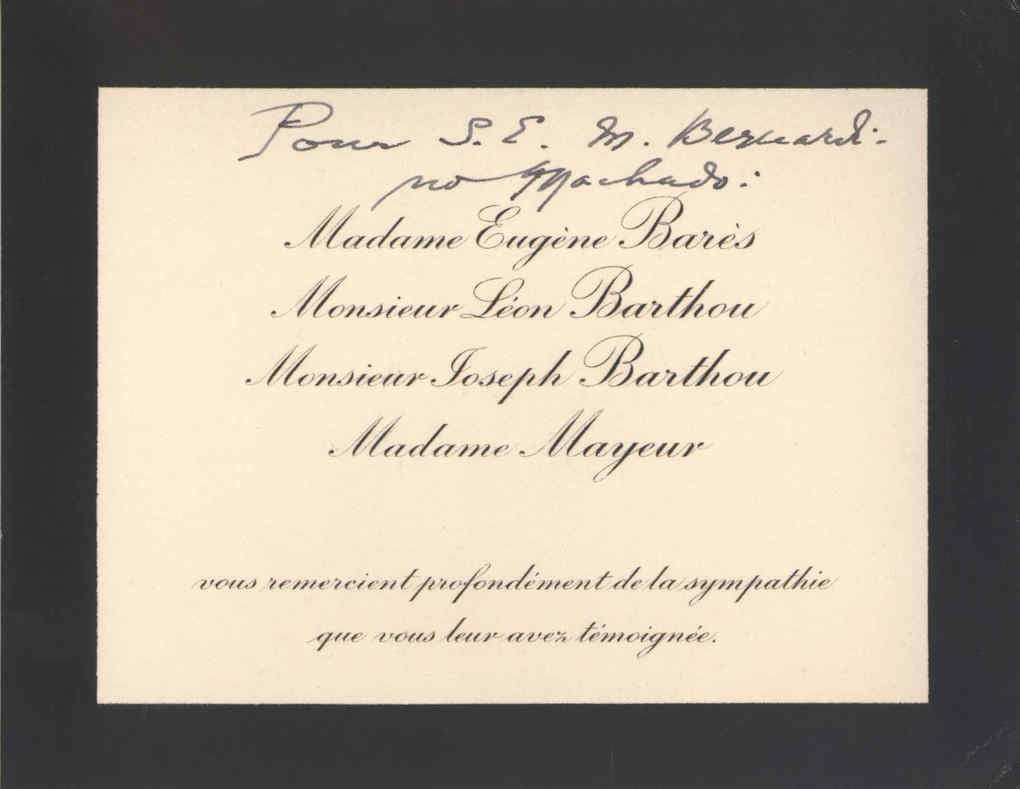 Pour S. E. M. Bernardi-
no Machado:
Madame Eugène Barès
Monsieur Léon Barthou
Monsieur Joseph Barthou
Madame Mayeur
vous remercient profondément de la sympathie
que vous leur avez témoignée.